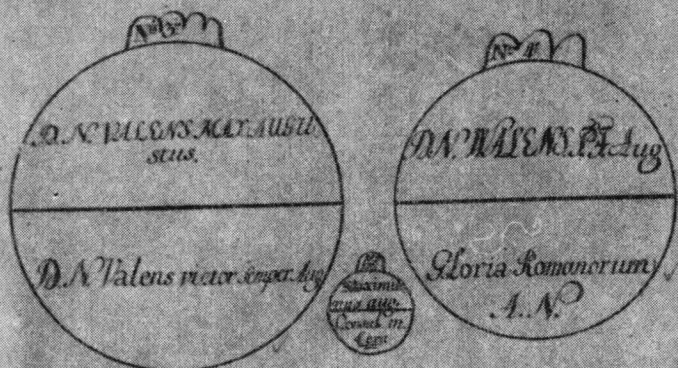 No 3.
D. N. VALENS MAX AUGU
stus.
D. N Valens victor semper Aug
No 4.
D.N. VALENS. P.F. Aug
Gloria Romanorum
A. N.
Maximia
nus aug.
in